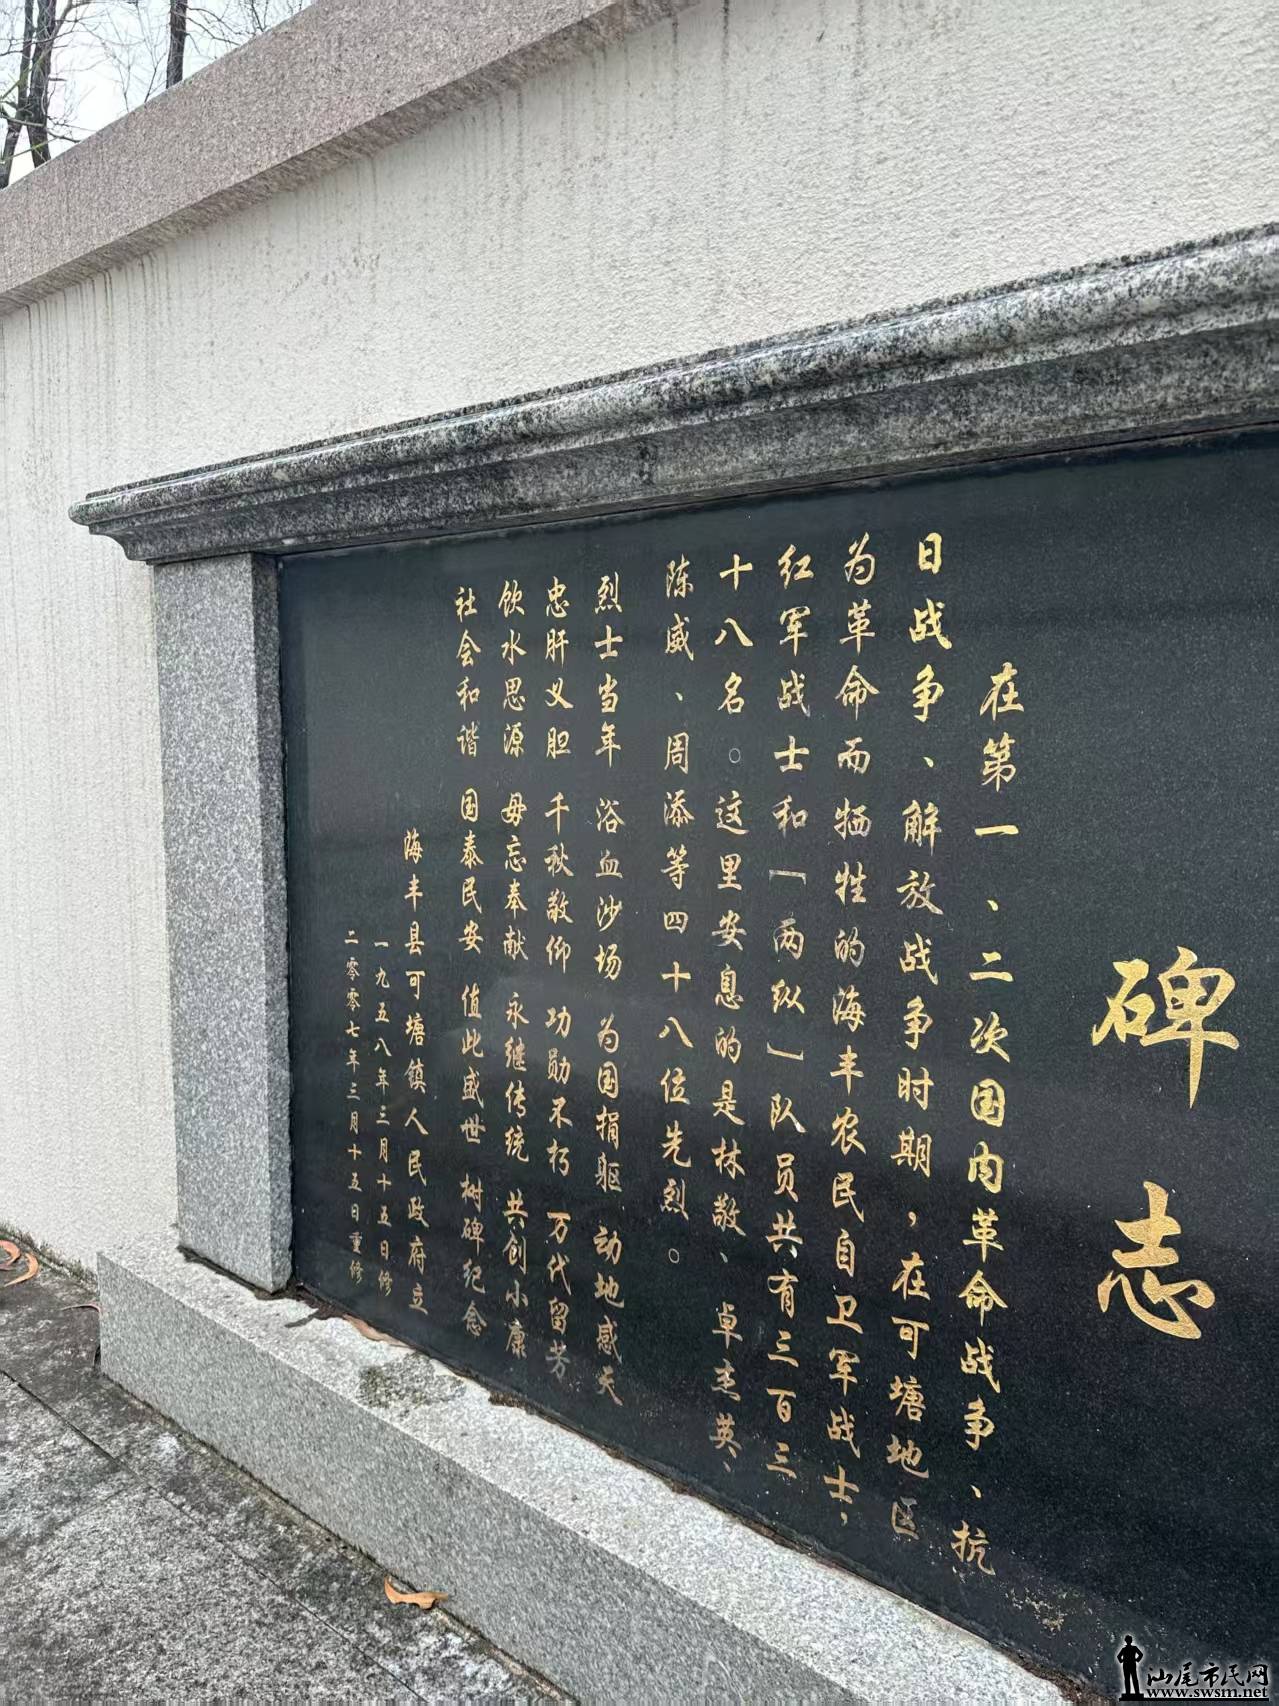 碑志
在第一、二次国内革命战争、抗
日战争、解放战争时期，在可塘地区
为革命而牺牲的海丰农民自卫军战士，
红军战士和［两纵］队员共有三百三
十八名。这里安息的是林敬、卓杰英、
陈威、周添等四十八位先烈。
烈士当年 浴血沙场 为国捐躯 动地感天
忠肝义胆 千秋敬仰 功勋不朽 万代留芳
饮水思源 毋忘奉献 永继传统 共创小康
社会和谐 国泰民安 值此盛世 树碑纪念
海丰县可塘镇人民政府立
一九五八年三月十五日修
二零零七年三月十五日重修
汕尾市民网
www.swsm.net